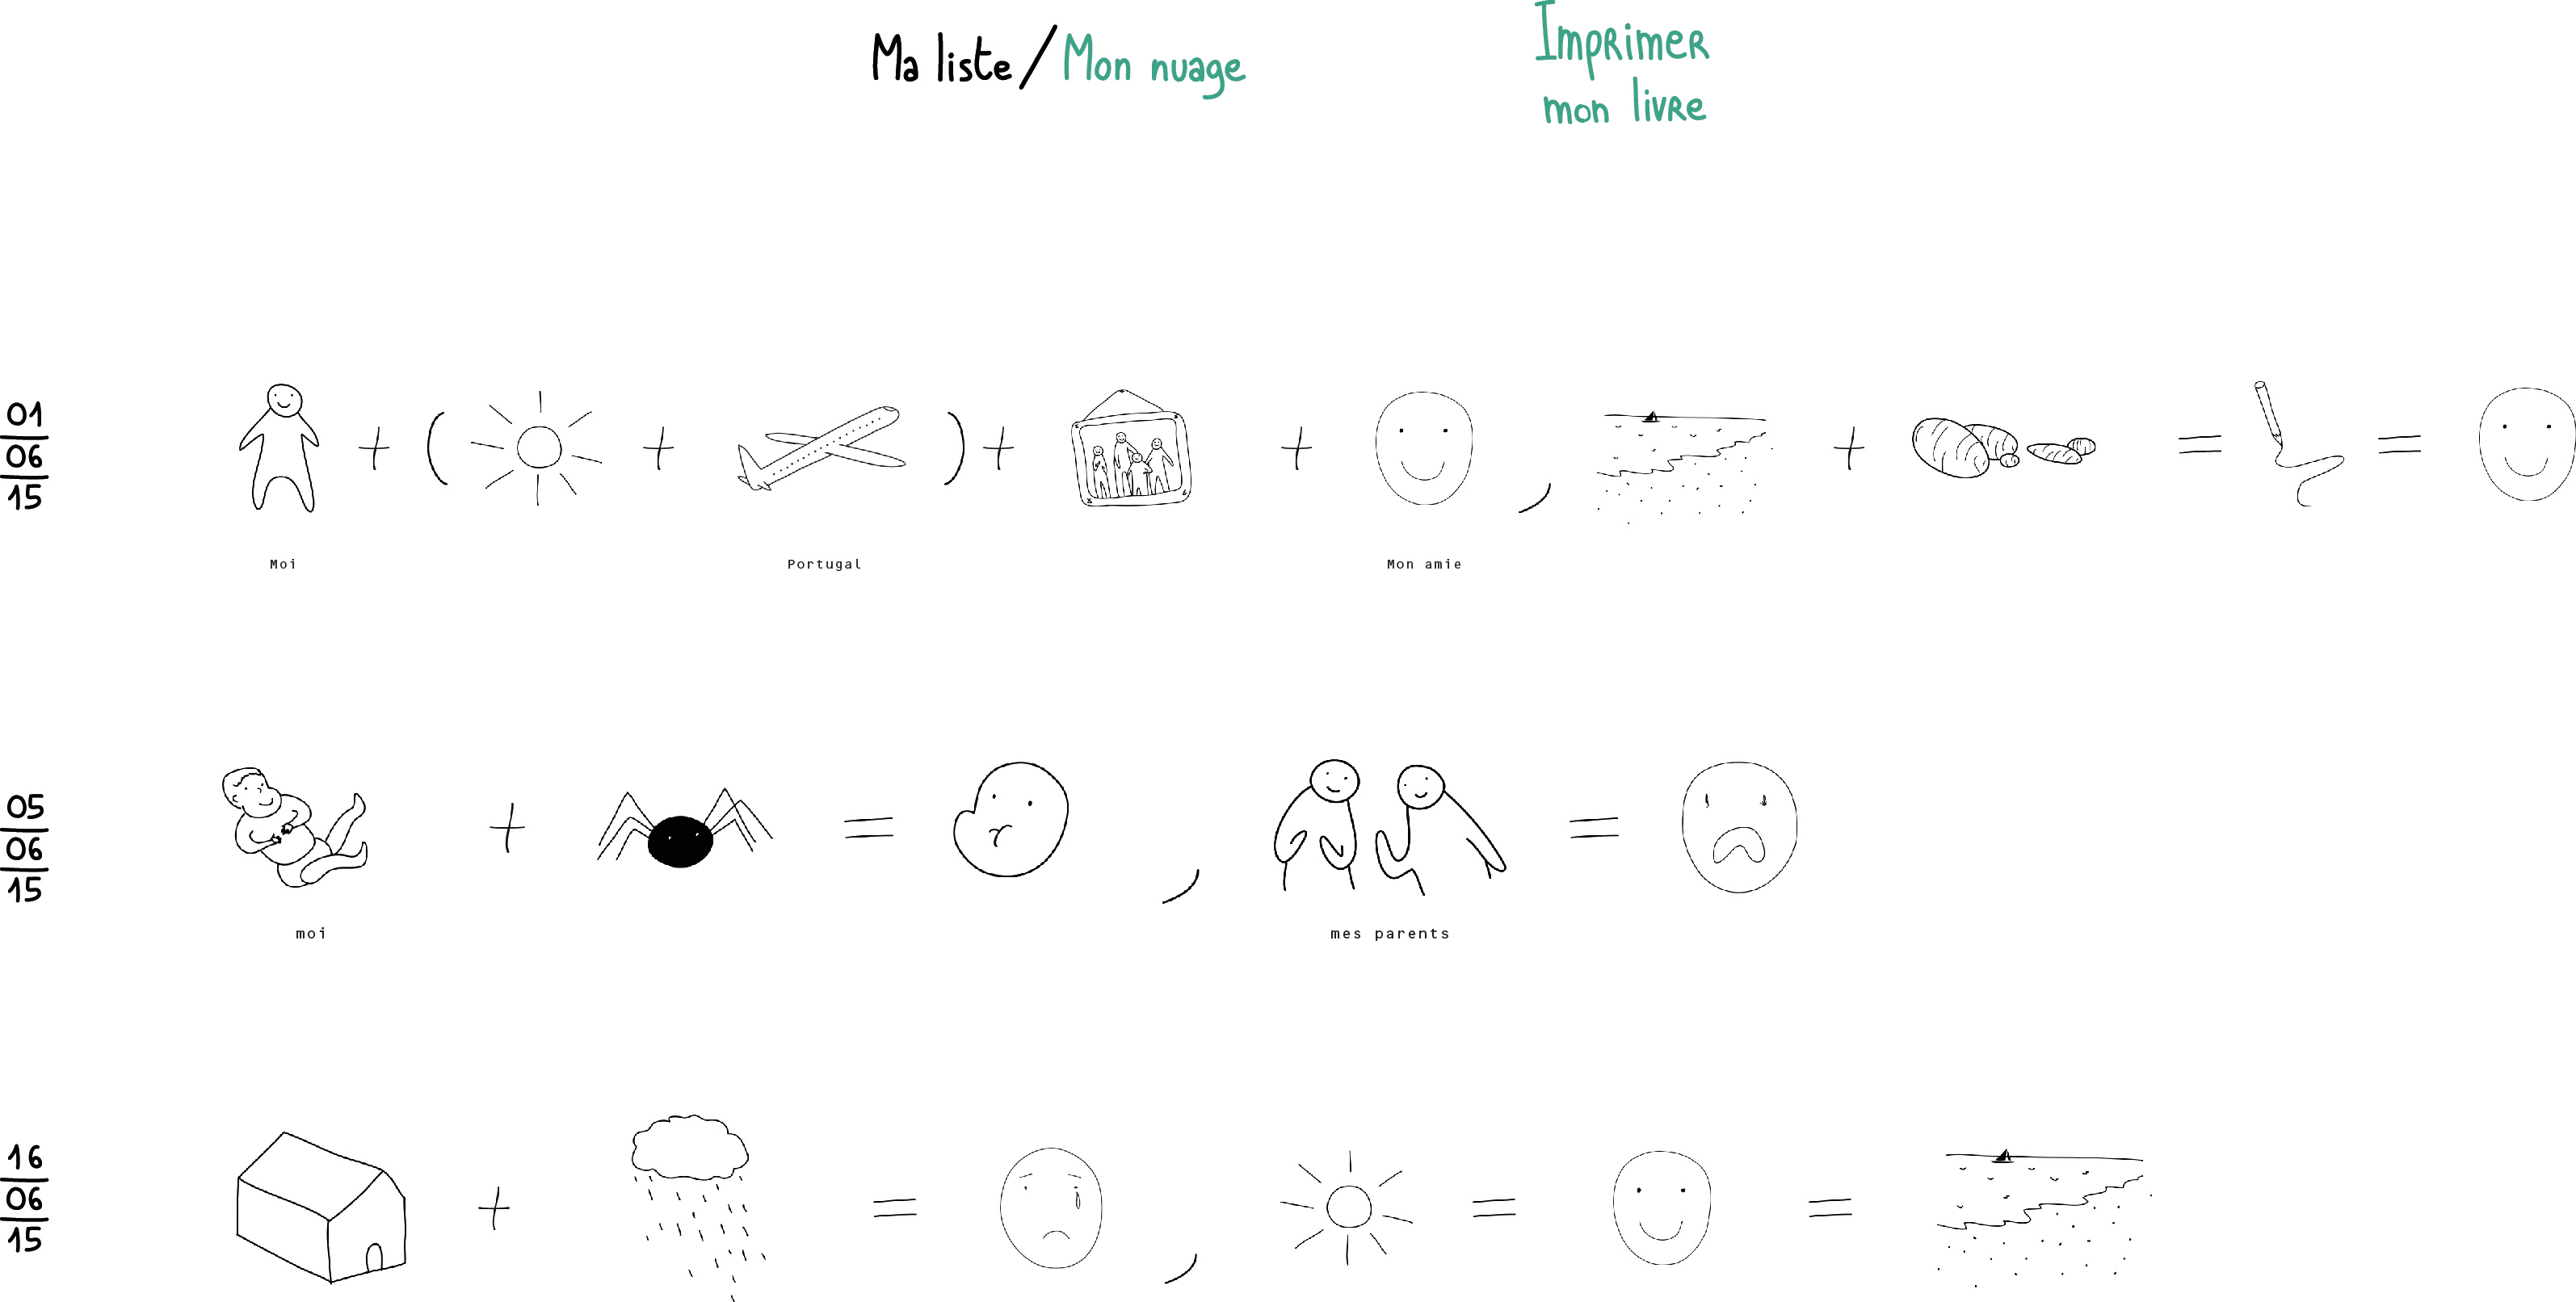 Ma liste / Mon nuage
Imprimer
mon livre
01
06
15
+ ( + ) + + , + = =
Moi
Portugal
Mon amie
05
06
15
+ = , =
moi
mes parents
16
06
15
+ = , = =